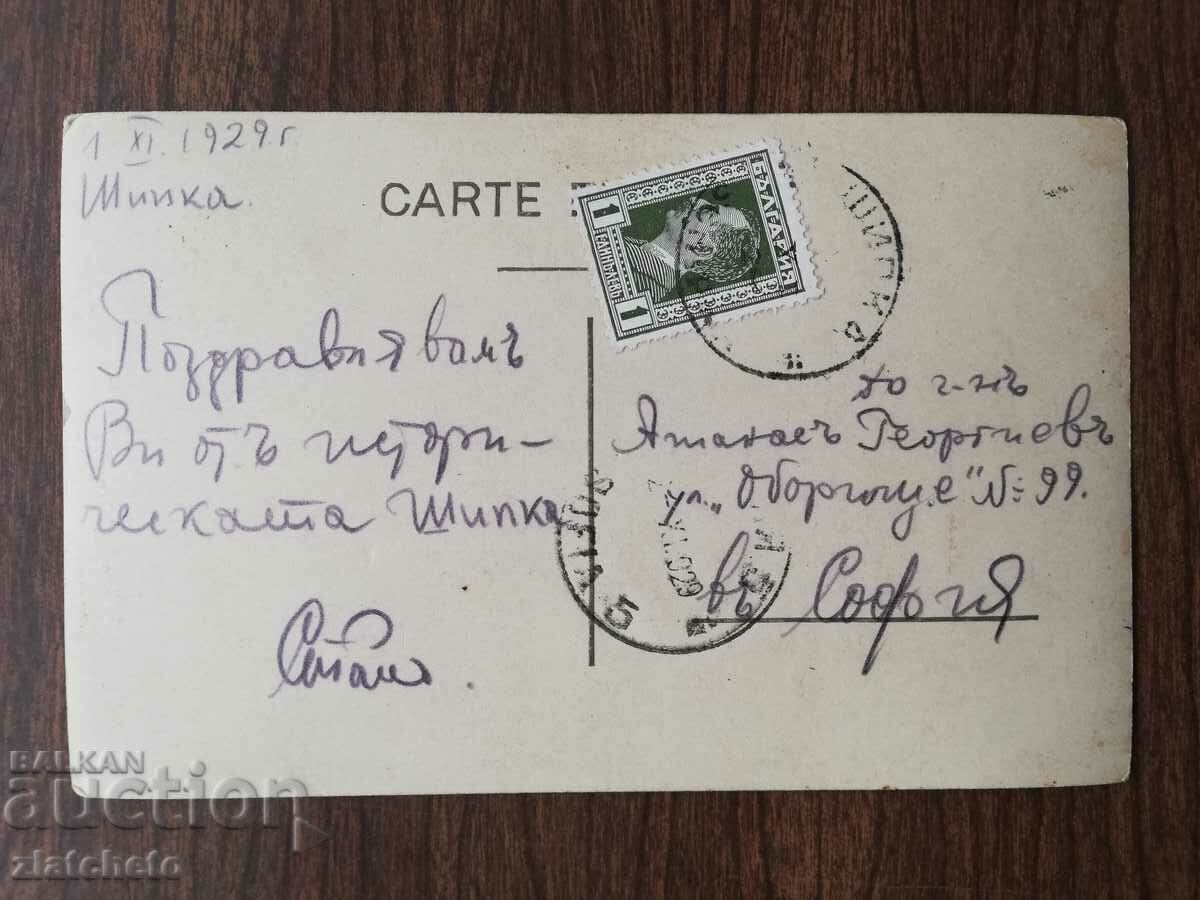 1 XI. 1929 г
Шипка.
CARTE
БЪЛГАРИЯ
1
ЕДИНЪ ЛЕВЪ
1
ШИПКА
Поздравявамъ
Ви отъ истори-
ческата Шипка
До г-нъ
Атанасъ Георгиевъ
ул. „Оборище" № 99.
въ София
SOFIA 5
XI.929
BALKAN
auction
zlatcheto